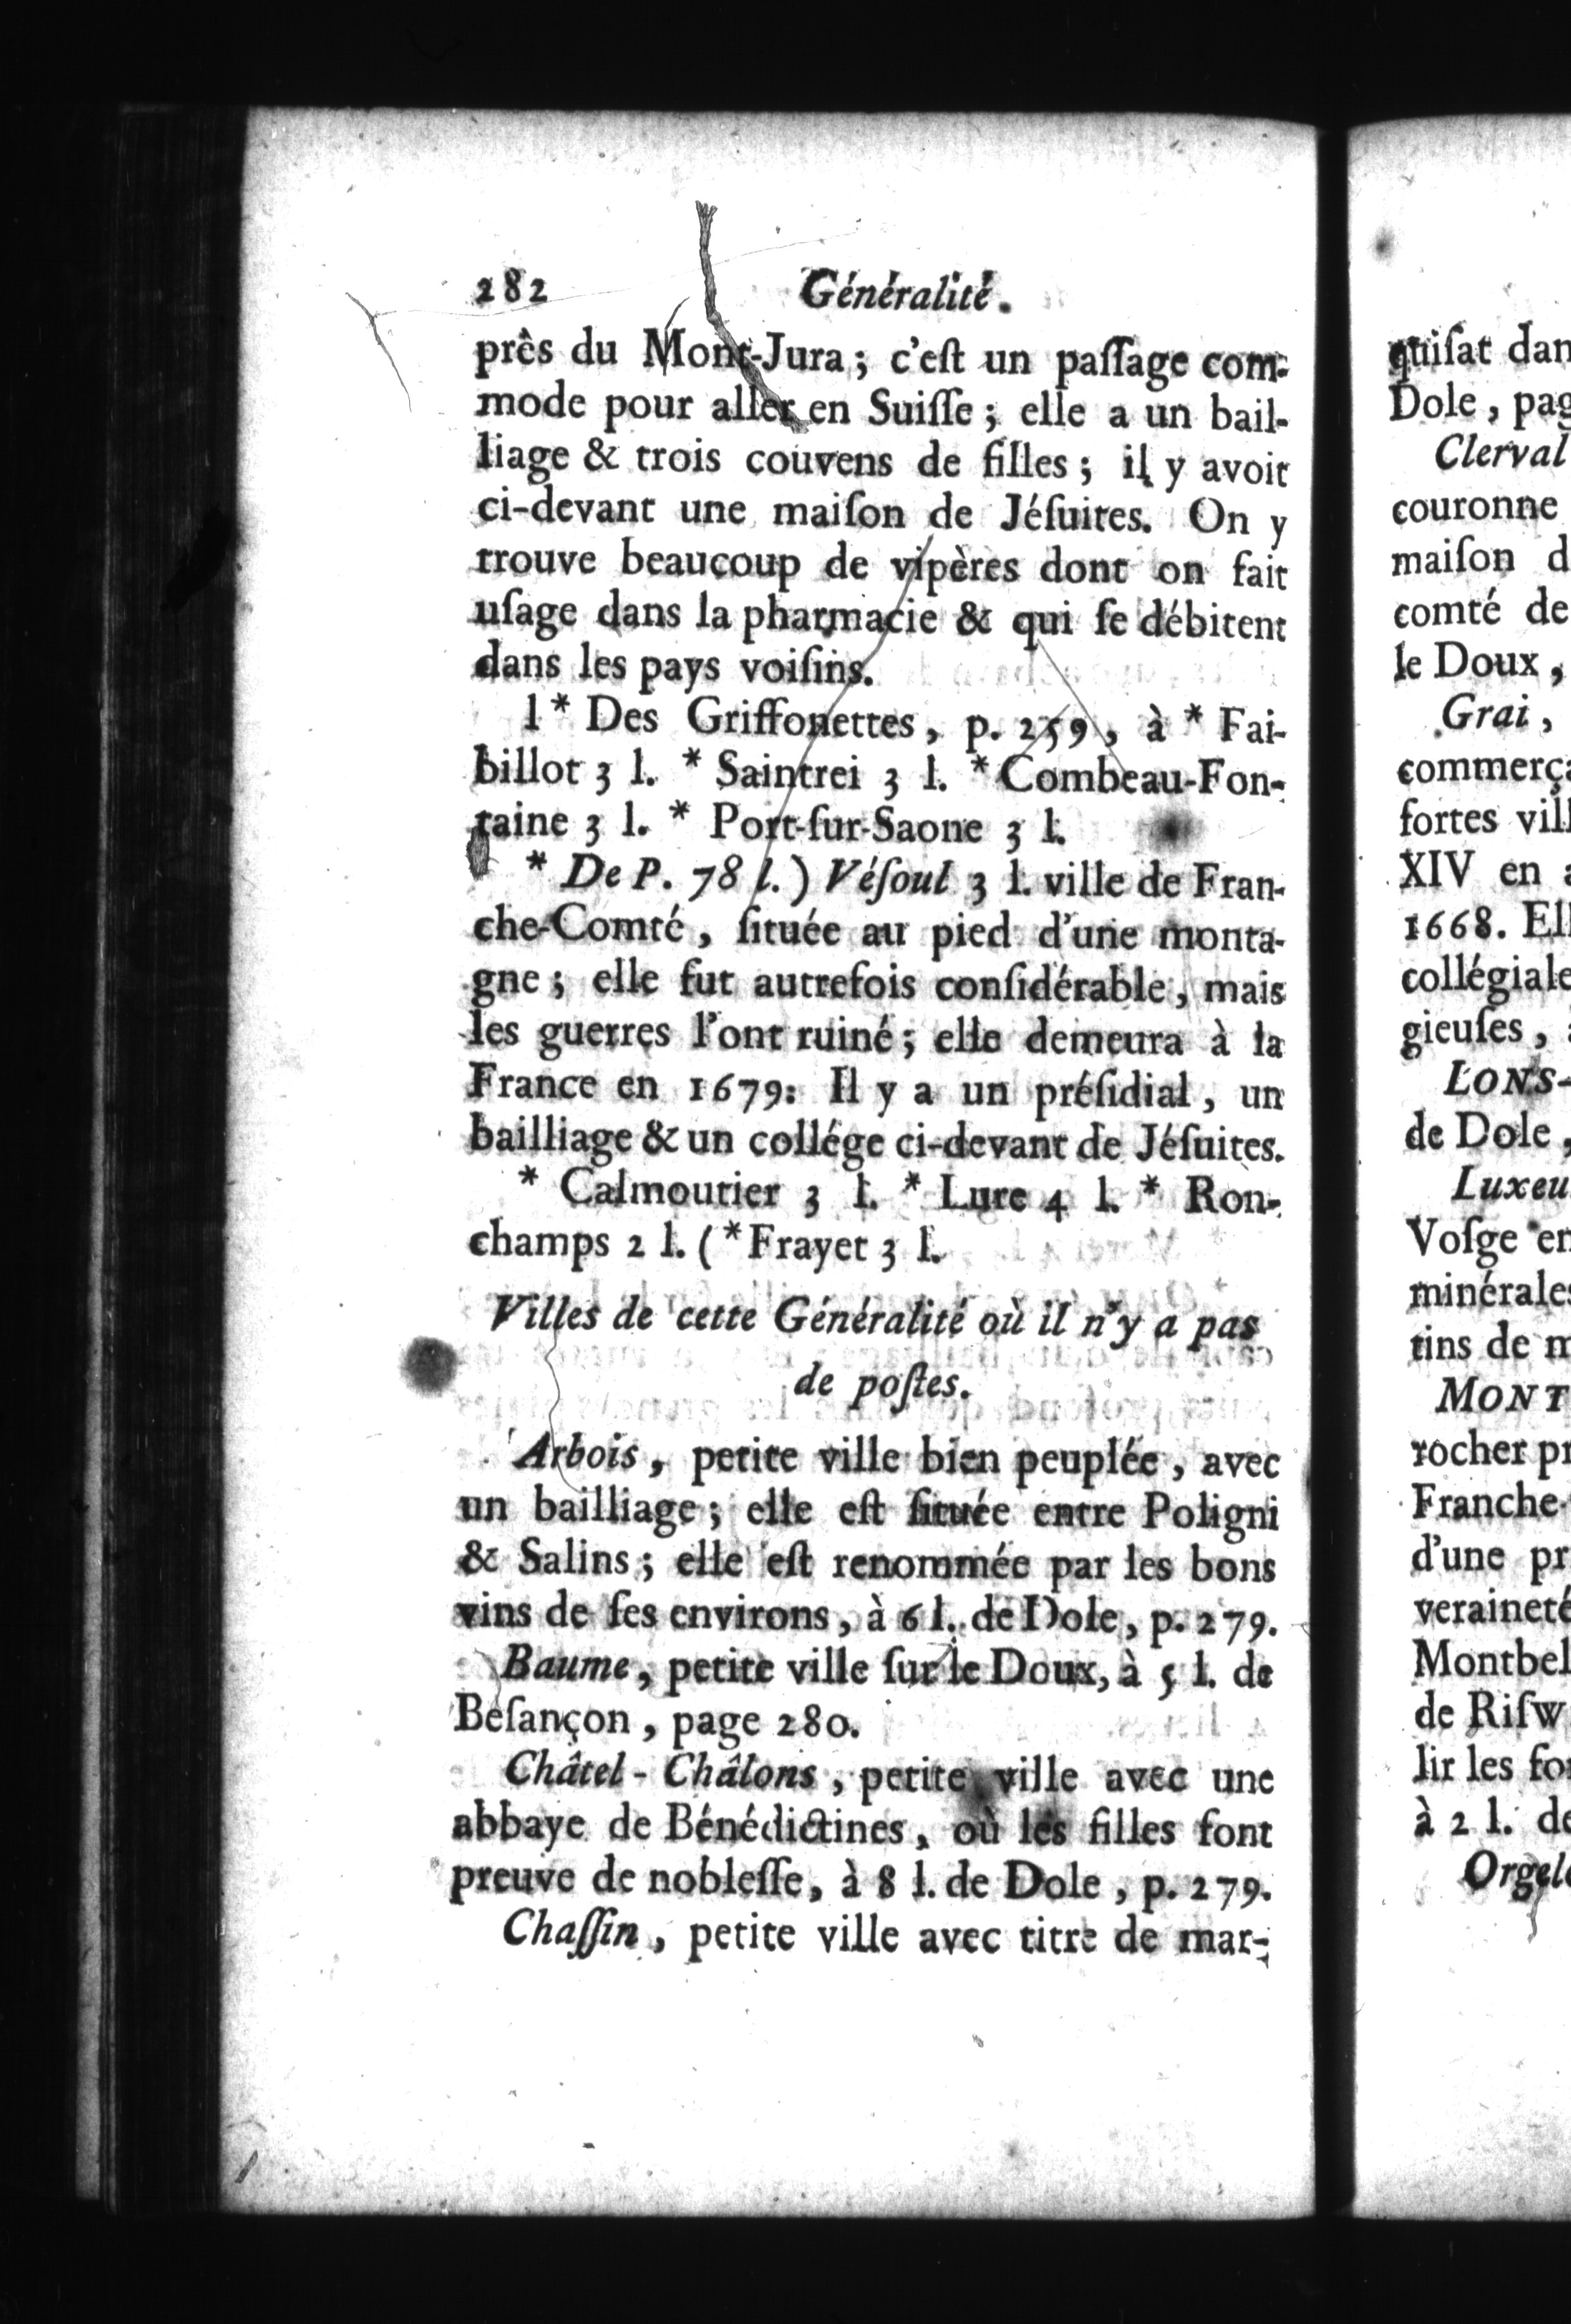 282 Généralité.
près du Mont-Jura; c'eſt un paſſage com-
mode pour aller en Suiſſe; elle a un bail-
liage & trois couvens de filles; il y avoit
ci-devant une maiſon de Jéſuites. On y
trouve beaucoup de vipères dont on fait
uſage dans la pharmacie & qui ſe débitent
dans les pays voiſins.
l * Des Griffonettes, p. 259, à * Fai-
billot 3 l. * Saintrei 3 l. * Combeau-Fon-
taine 3 l. * Port-ſur-Saone 3 l.
* De P. 78 l.) Véſoul 3 l. ville de Fran-
che-Comté, ſituée au pied d'une monta-
gne; elle fut autrefois conſidérable, mais
les guerres l'ont ruiné; elle demeura à la
France en 1679: Il y a un préſidial, un
bailliage & un collége ci-devant de Jéſuites.
* Calmoutier 3 l. * Lure 4 l. * Ron-
champs 2 l. (* Frayet 3 l.
Villes de cette Généralité où il n'y a pas
de poſtes.
Arbois, petite ville bien peuplée, avec
un bailliage; elle eſt ſituée entre Poligni
& Salins; elle eſt renommée par les bons
vins de ſes environs, à 6 l. de Dole, p. 279.
Baume, petite ville ſur le Doux, à 5 l. de
Beſançon, page 280.
Châtel-Châlons, petite ville avec une
abbaye de Bénédictines, où les filles font
preuve de nobleſſe, à 8 l. de Dole, p. 279.
Chaſſin, petite ville avec titre de mar-
quiſat dan
Dole, pag
Clerval
couronne
maiſon d
comté de
le Doux,
Grai,
commerça
fortes vill
XIV en a
1668. Ell
collégiale
gieuſes,
LONS-
de Dole,
Luxeu
Voſge en
minérales
tins de m
MONT
rocher pr
Franche-
d'une pr
veraineté
Montbel
de Riſw
lir les for
à 2 l. de
Orgele